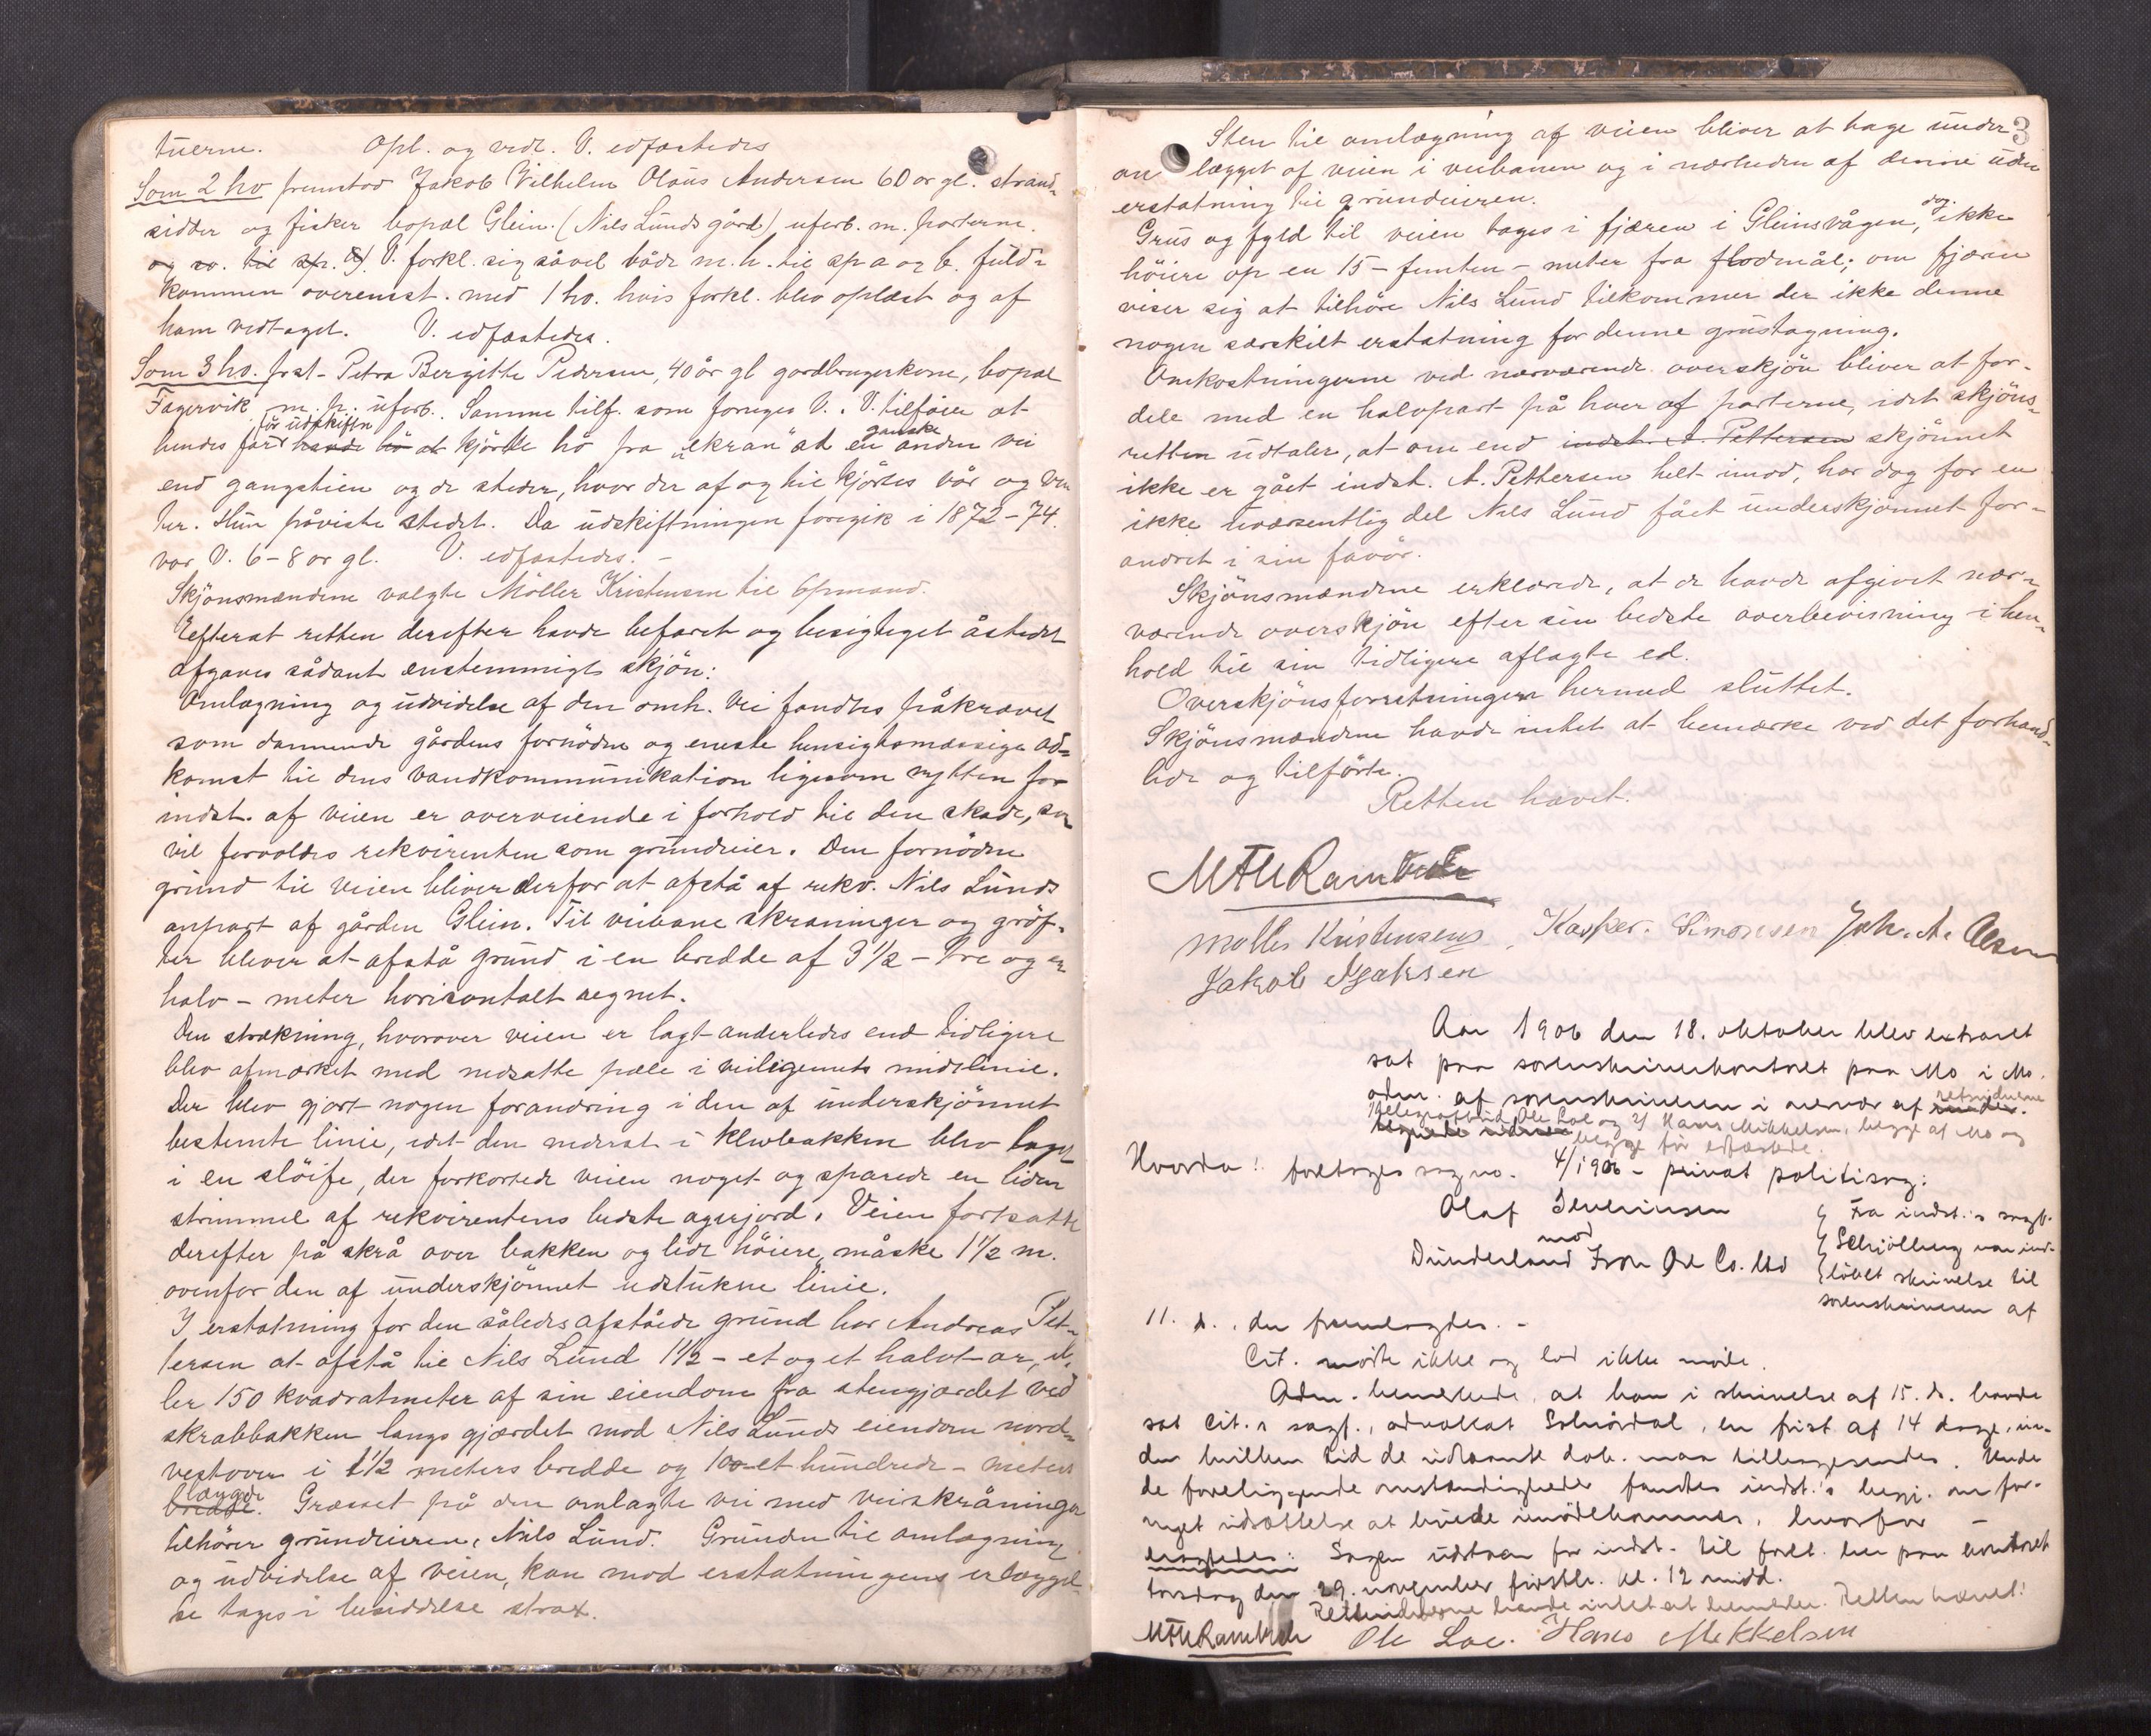 tuerne. Opl. og vedt. V. edfæstedes
Som 2 hv fremstod Jakob Vilhelm Olaus Andersen 60 år gl. strand-
sidder og fisker bopæl Glein. (Nils Lunds gård), uforb. m. parterne.
og sv. til sp. a). V. forkl. sig såvel både m. h. til sp a og b. fuld-
kommen overenst. med 1 hv. hvis forkl. blev oplæst og af
ham vedtaget. V. edfæstedes.
Som 3 hv. frst. Petra Bergitte Pedersen, 40 år gl gårdbrugerkone, bopæl
Fagervik m. p. uforb. Samme tilf. som foreges V. V. tilføier at
før udskiftn ganske
hendes far havde hø at kjørte hø fra "ekran" ad en anden vei
end gangstien og de steder, hvor der af og til kjørtes vår og vin
ter. Hun påviste stedet. Da udskiftningen foregik i 1872-74.
var V. 6-8 år gl. V. edfæstedes. -
Skjønsmændene valgte Möller Kristensen til Opmand.
Efterat retten derefter havde befaret og besigtiget åstedet
afgaves sådant enstemmigt skjøn:
Omlægning og udvidelse af den omh. vei fandtes påkrævet
som dannende gårdens fornødne og eneste hensigtsmæssige ad-
komst til dens vandkommunikation ligesom nytten for
indst. af veien er overveiende i forhold til den skade, som
vil forvoldes rekvirenten som grundeier. Den fornødne
grund til veien bliver derfor at afstå af rekv. Nils Lunds
anpart af gården Glein. Til veibane skråninger og grøf-
ter bliver at afstå grund i en bredde af 3 1/2 - tre og en
halv - meter horisontalt regnet.
Den strækning, hvorover veien er lagt anderledes end tidligere
blev afmærket med nedsatte pæle i veilegemets midtlinie.
Der blev gjort nogen forandring i den af underskjønnet
bestemte linie, idet den nederst i klevbakken blev laget
i en sløife, der forkortede veien noget og sparede en liden
strimmel af rekvirentens bedste agerjord. Veien fortsatte
derefter på skrå over bakken og lidt høiere, måske 1 1/2 m.
ovenfor den af underskjønnet udstukne linie.
I erstatning for den således afståede grund har Andreas Pet-
tersen at afstå til Nils Lund 1 1/2 - et og et halvt ar, el-
ler 150 kvadratmeter af sin eiendom fra stengjærdet ved
skrabbakken langs gjærdet mod Nils Lunds eiendom nord-
vestover i 1 1/2 meters bredde og 100 et hundrede - meters
længde
bredde. Græsset på den omlagte vei med veiskråninger
tilhører grundeieren, Nils Lund. Grunden til omlægning
og udvidelse af veien, kan mod erstatningens erlæggel-
se tages i besiddelse strax.
3
Sten til omlægning af veien bliver at tage under
anlægget af veien i veibanen og i nærheden af denne uden
erstatning til grundeieren.
dog
Grus og fyld til veien tages i fjæren i Gleinsvågen, ikke
høiere op en 15 - femten - meter fra flodmål; om fjæren
viser sig at tilhøre Nils Lund tilkommer der ikke denne
nogen særskilt erstatning for denne grustagning.
Omkostningerne ved nærværende overskjøn bliver at for-
dele med en halvpart på hver af parterne, idet skjøns-
retten udtaler, at om end indst. A. Pettersen skjønnet
ikke er gået indst. A. Pettersen helt imod, har dog for en
ikke uvæsentlig del Nils Lund fået underskjønnet for-
andret i sin favør.
Skjønsmændene erklærede, at de havde afgivet nær-
værende overskjøn efter sin bedste overbevisning i hen-
hold til sin tidligere aflagte ed.
Overskjønsforretningen hermed sluttet.
Skjønsmændene havde intet at bemærke ved det forhand-
lede og tilførte.
Retten hævet.
Møller Kristensen, Kasper. Simonsen Joh. A. Olsen
Jakob Isaksen
Aar 1906 den 18. oktober blev extraret
sat paa sorenskriverkontoret paa Mo i Mo.
adm. af sorenskriveren i nærvær af retsvidnerne
1) telegrafbud Ole Loe og 2) Hans Mikkelsen, begge af Mo og
begge før edfæstede.
Hvorda: foretoges sag no. 4/1906 - privat politisag:
Olaf Severinsen
mod
Dunderland Iron Ore Co. Ltd
Fra indst.s sagf.
Schjölberg var ind-
løbet skrivelse til
sorenskriveren af
11. d. der fremlagdes. -
Cit. mødte ikke og lod ikke møde.
Adm. bemærkede, at han i skrivelse af 15. ds. havde
sat cit.s sagf., advokat Solnørdal, en frist af 14 dage, in-
den hvilken tid de udlaante dok. maa tilbagesendes. Under
de foreliggende omstændigheder fandtes indst.'s begj. om for-
nyet udsættelse at burde imødekommes, hvorfor -
eragtedes: Sagen udstaar for indst. til foret. her paa kontoret
torsdag den 29. november førstk. kl. 12 midd.
Retsvidnerne havde intet at bemærke. Retten hævet.
Ole Loe. Hans Mikkelsen